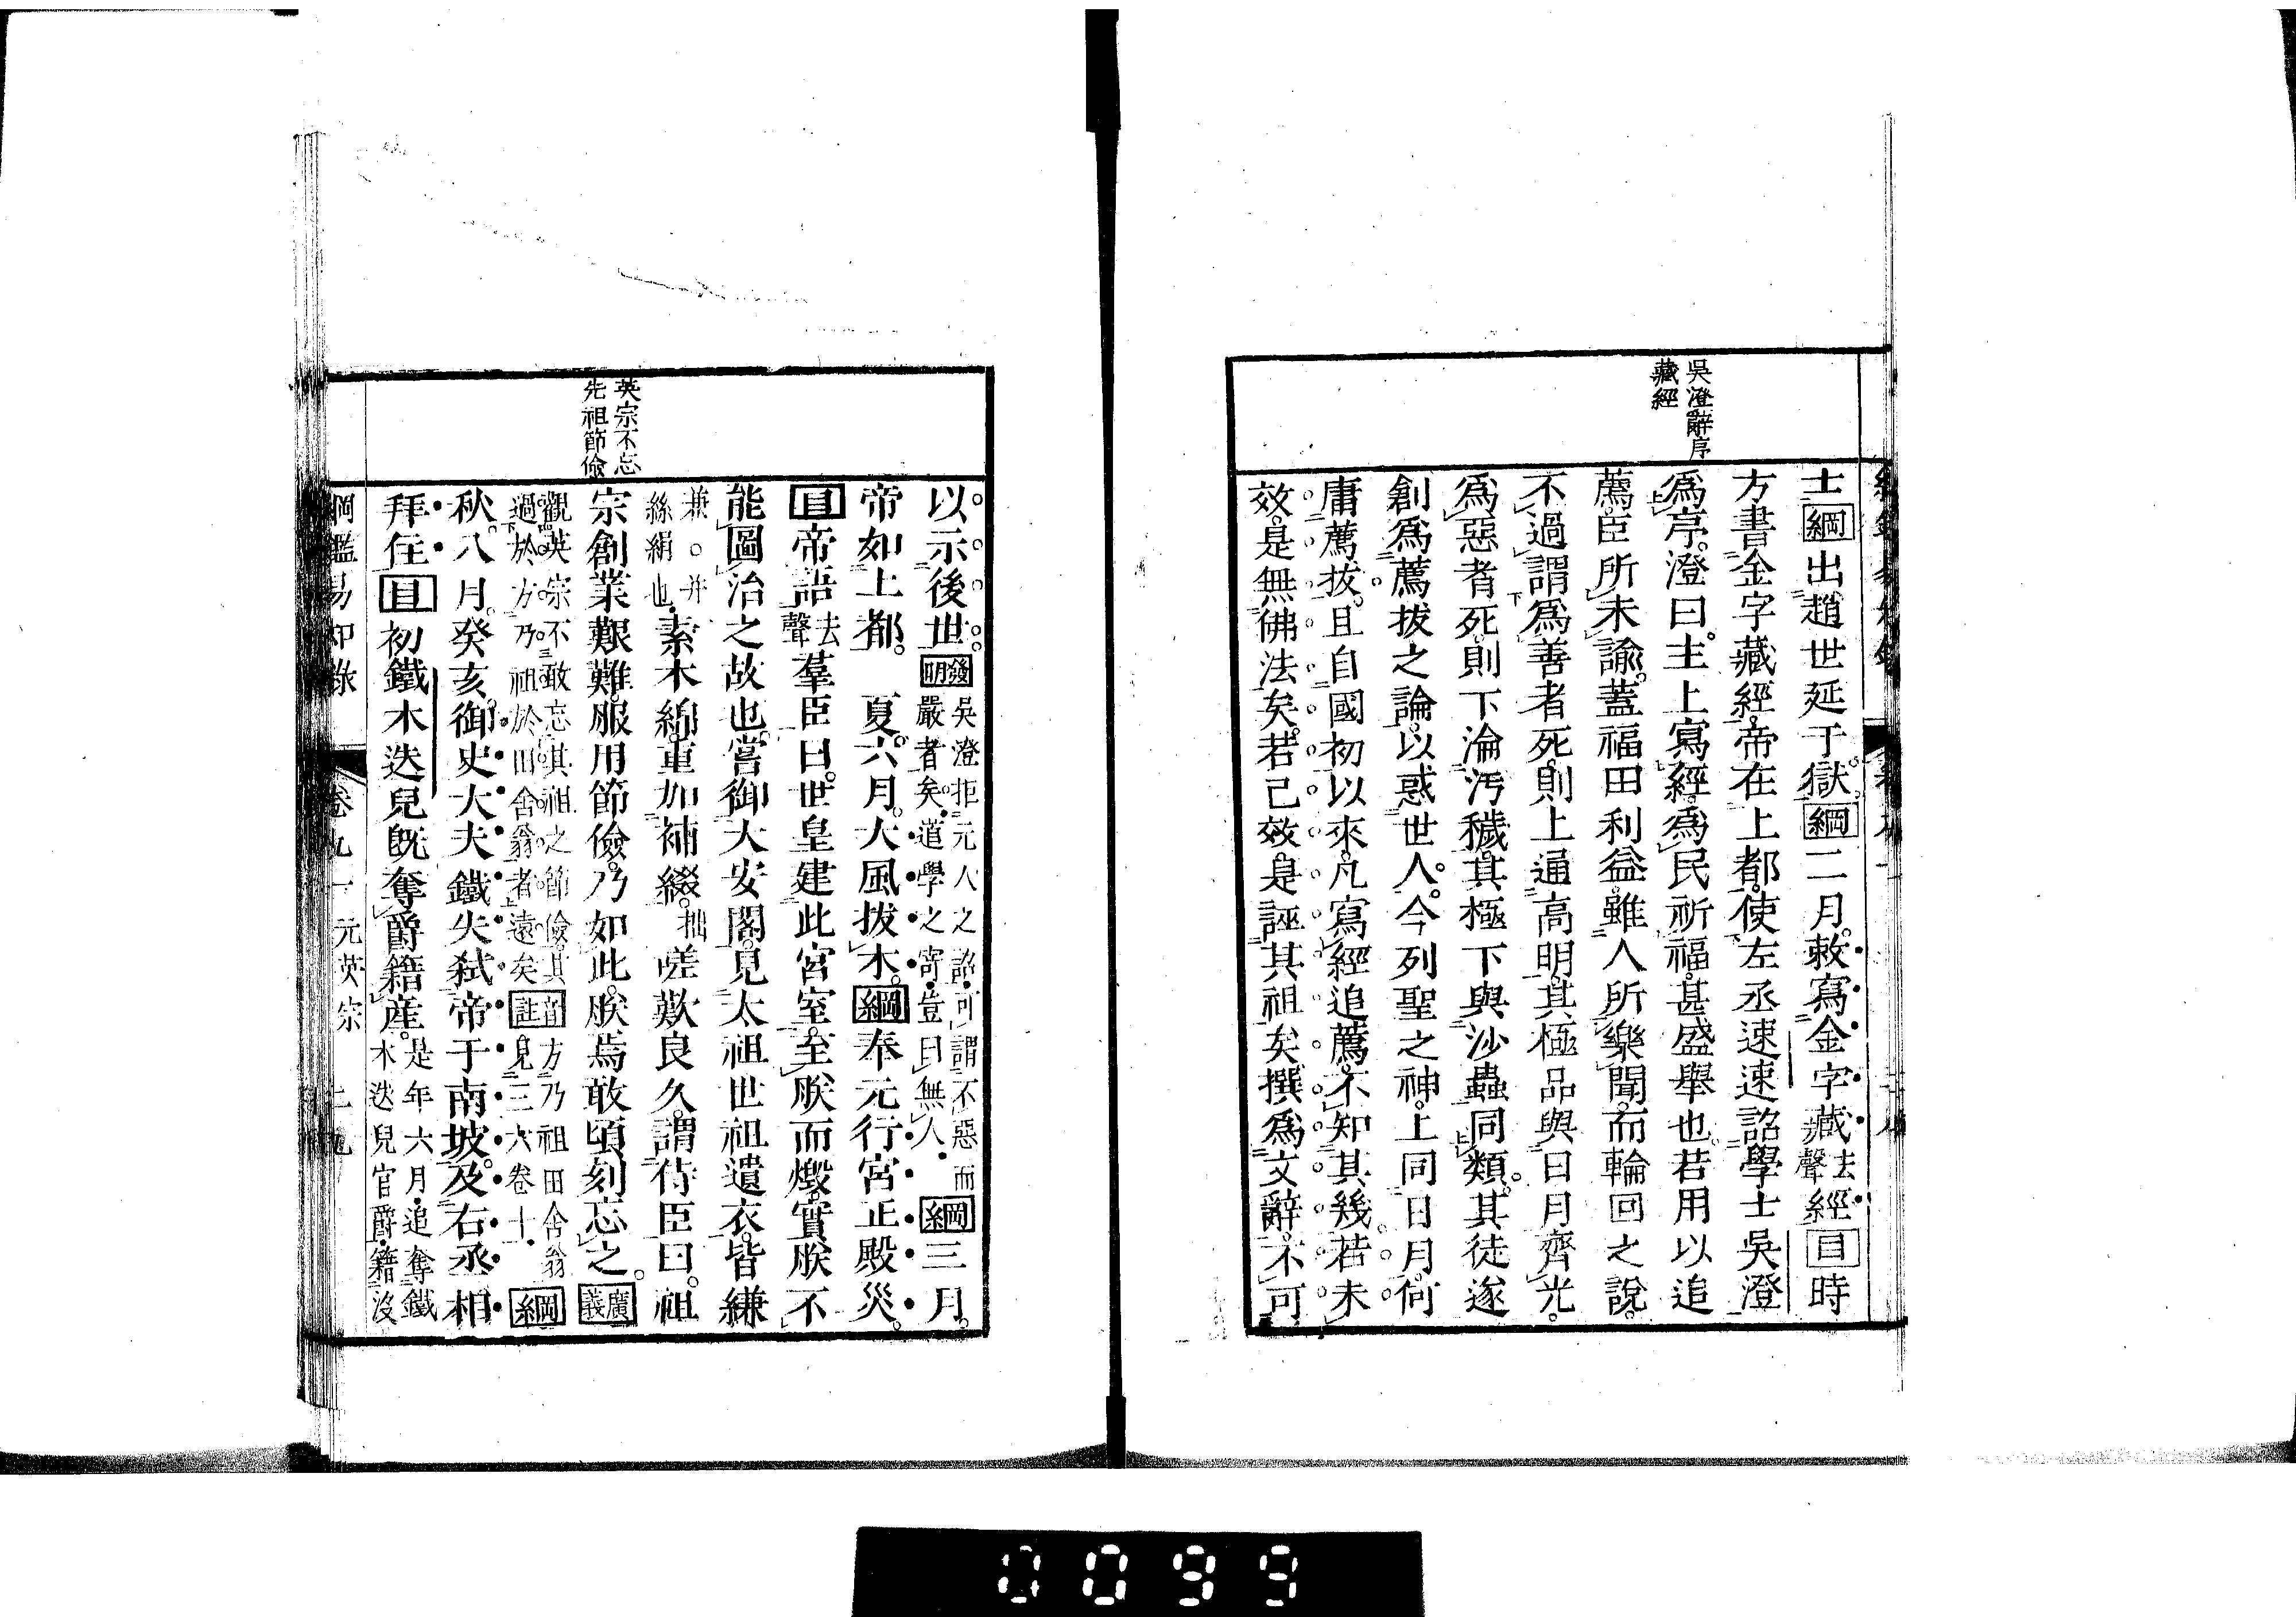 吳澄辭序
藏經
士綱出趙世延于獄。綱二月。敕寫金字藏去聲經目時
方書金字藏經。帝在上都。使左丞速速詔學士吳澄
爲序。澄曰。主上寫經。爲民祈福。甚盛舉也。若用以追
薦。臣所未諭。蓋福田利益。雖人所樂聞。而輪回之說。
不過謂爲善者死。則上通高明。其極品與日月齊光。
爲惡者死。則下淪汚穢。其極下與沙蟲同類。其徒遂
創爲薦拔之論。以惑世人。今列聖之神。上同日月。何
庸薦拔。且自國初以來。凡寫經追薦。不知其幾。若未
效。是無佛法矣。若已效。是誣其祖矣。撰爲文辭。不可
英宗不忘
先祖節儉
以示後世。發明吳澄拒元人之詔。可謂不惡而嚴者矣。道學之寄。豈曰無人。綱三月。
帝如上都。 夏六月。大風拔木。綱奉元行宮正殿災。
目帝語去聲羣臣曰。世皇建此宮室。至朕而燬。實朕不
能圖治之故也。嘗御大安閣。見太祖世祖遺衣。皆縑
兼。○并絲絹也。素木綿。重加補綴。拙嗟歎良久。謂侍臣曰。祖
宗創業艱難。服用節儉。乃如此。朕焉敢頃刻忘之。廣義
觀英宗不敢忘其祖之節儉。其賢於方乃祖於田舍翁者遠矣註見三六卷十。綱
秋。八月。癸亥。御史大夫鐵失弒帝于南坡。及右丞相
拜住目初鐵木迭兒旣奪爵籍産。是年六月。追奪鐵木迭兒官爵。籍沒
綱鑑易知錄 卷九一 元英宗 二九